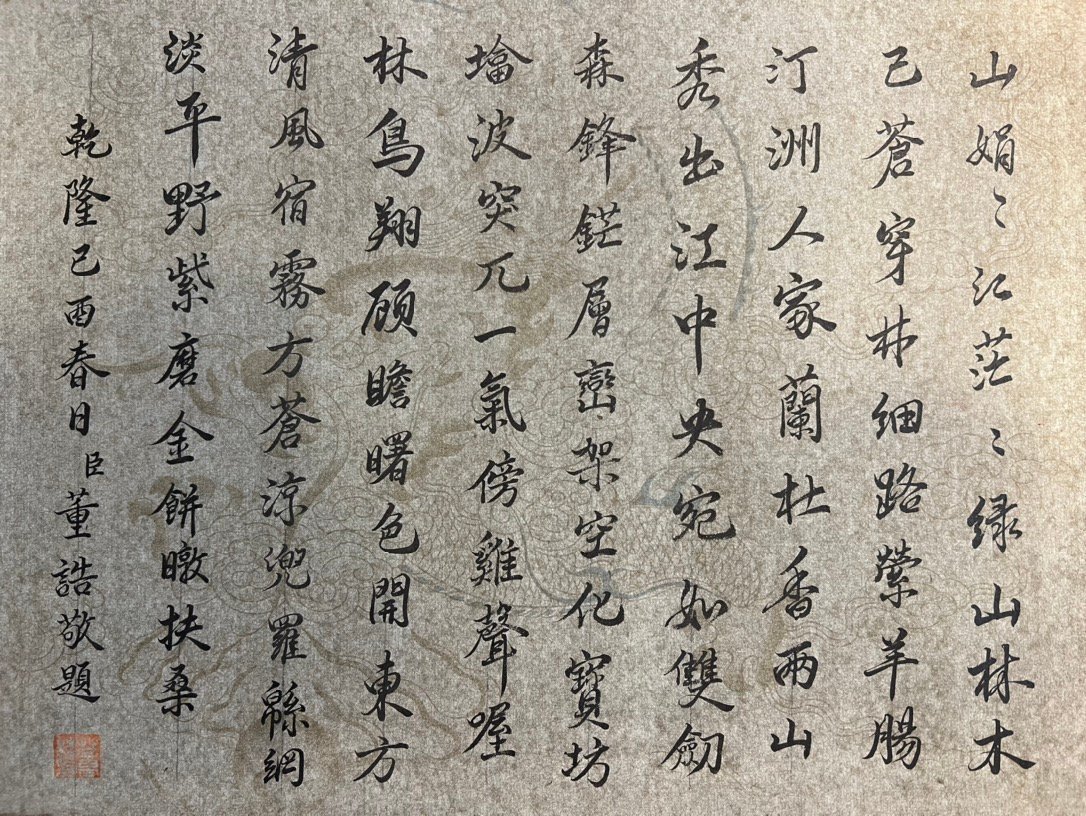 山娟〻江茫〻緑山林木
已蒼穿林細路縈羊腸
汀洲人家蘭杜香兩山
秀出江中央宛如雙劒
森鋒鋩層巒架空化寶坊
墖波突兀一氣傍雞聲喔
林鳥翔顧瞻曙色開東方
清風宿霧方蒼涼兜羅緜網
淡平野紫磨金餅暾扶桑
乾隆己酉春日臣董誥敬題